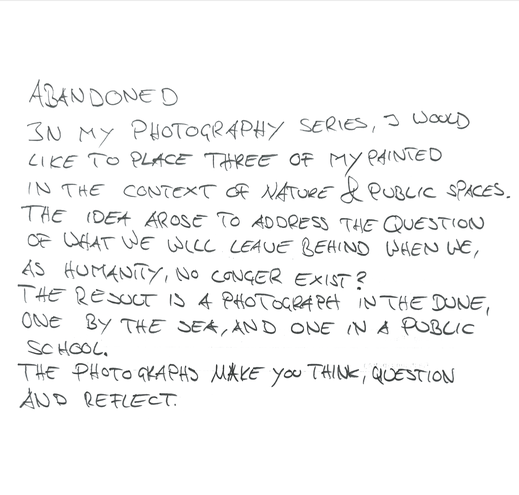 ABANDONED
IN MY PHOTOGRAPHY SERIES, I WOULD
LIKE TO PLACE THREE OF MY PAINTED
IN THE CONTEXT OF NATURE & PUBLIC SPACES.
THE IDEA AROSE TO ADDRESS THE QUESTION
OF WHAT WE WILL LEAVE BEHIND WHEN WE,
AS HUMANITY, NO LONGER EXIST?
THE RESULT IS A PHOTOGRAPH IN THE DUNE,
ONE BY THE SEA, AND ONE IN A PUBLIC
SCHOOL.
THE PHOTOGRAPHS MAKE YOU THINK, QUESTION
AND REFLECT.